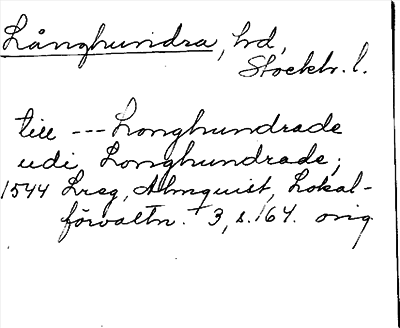 Långhundra, hd,
Stockh. l.
till --- Longhundrade
udi Longhundrade;
1544 Lrsg, Almquist, Lokal-
förvaltn. 3, s. 164. orig.